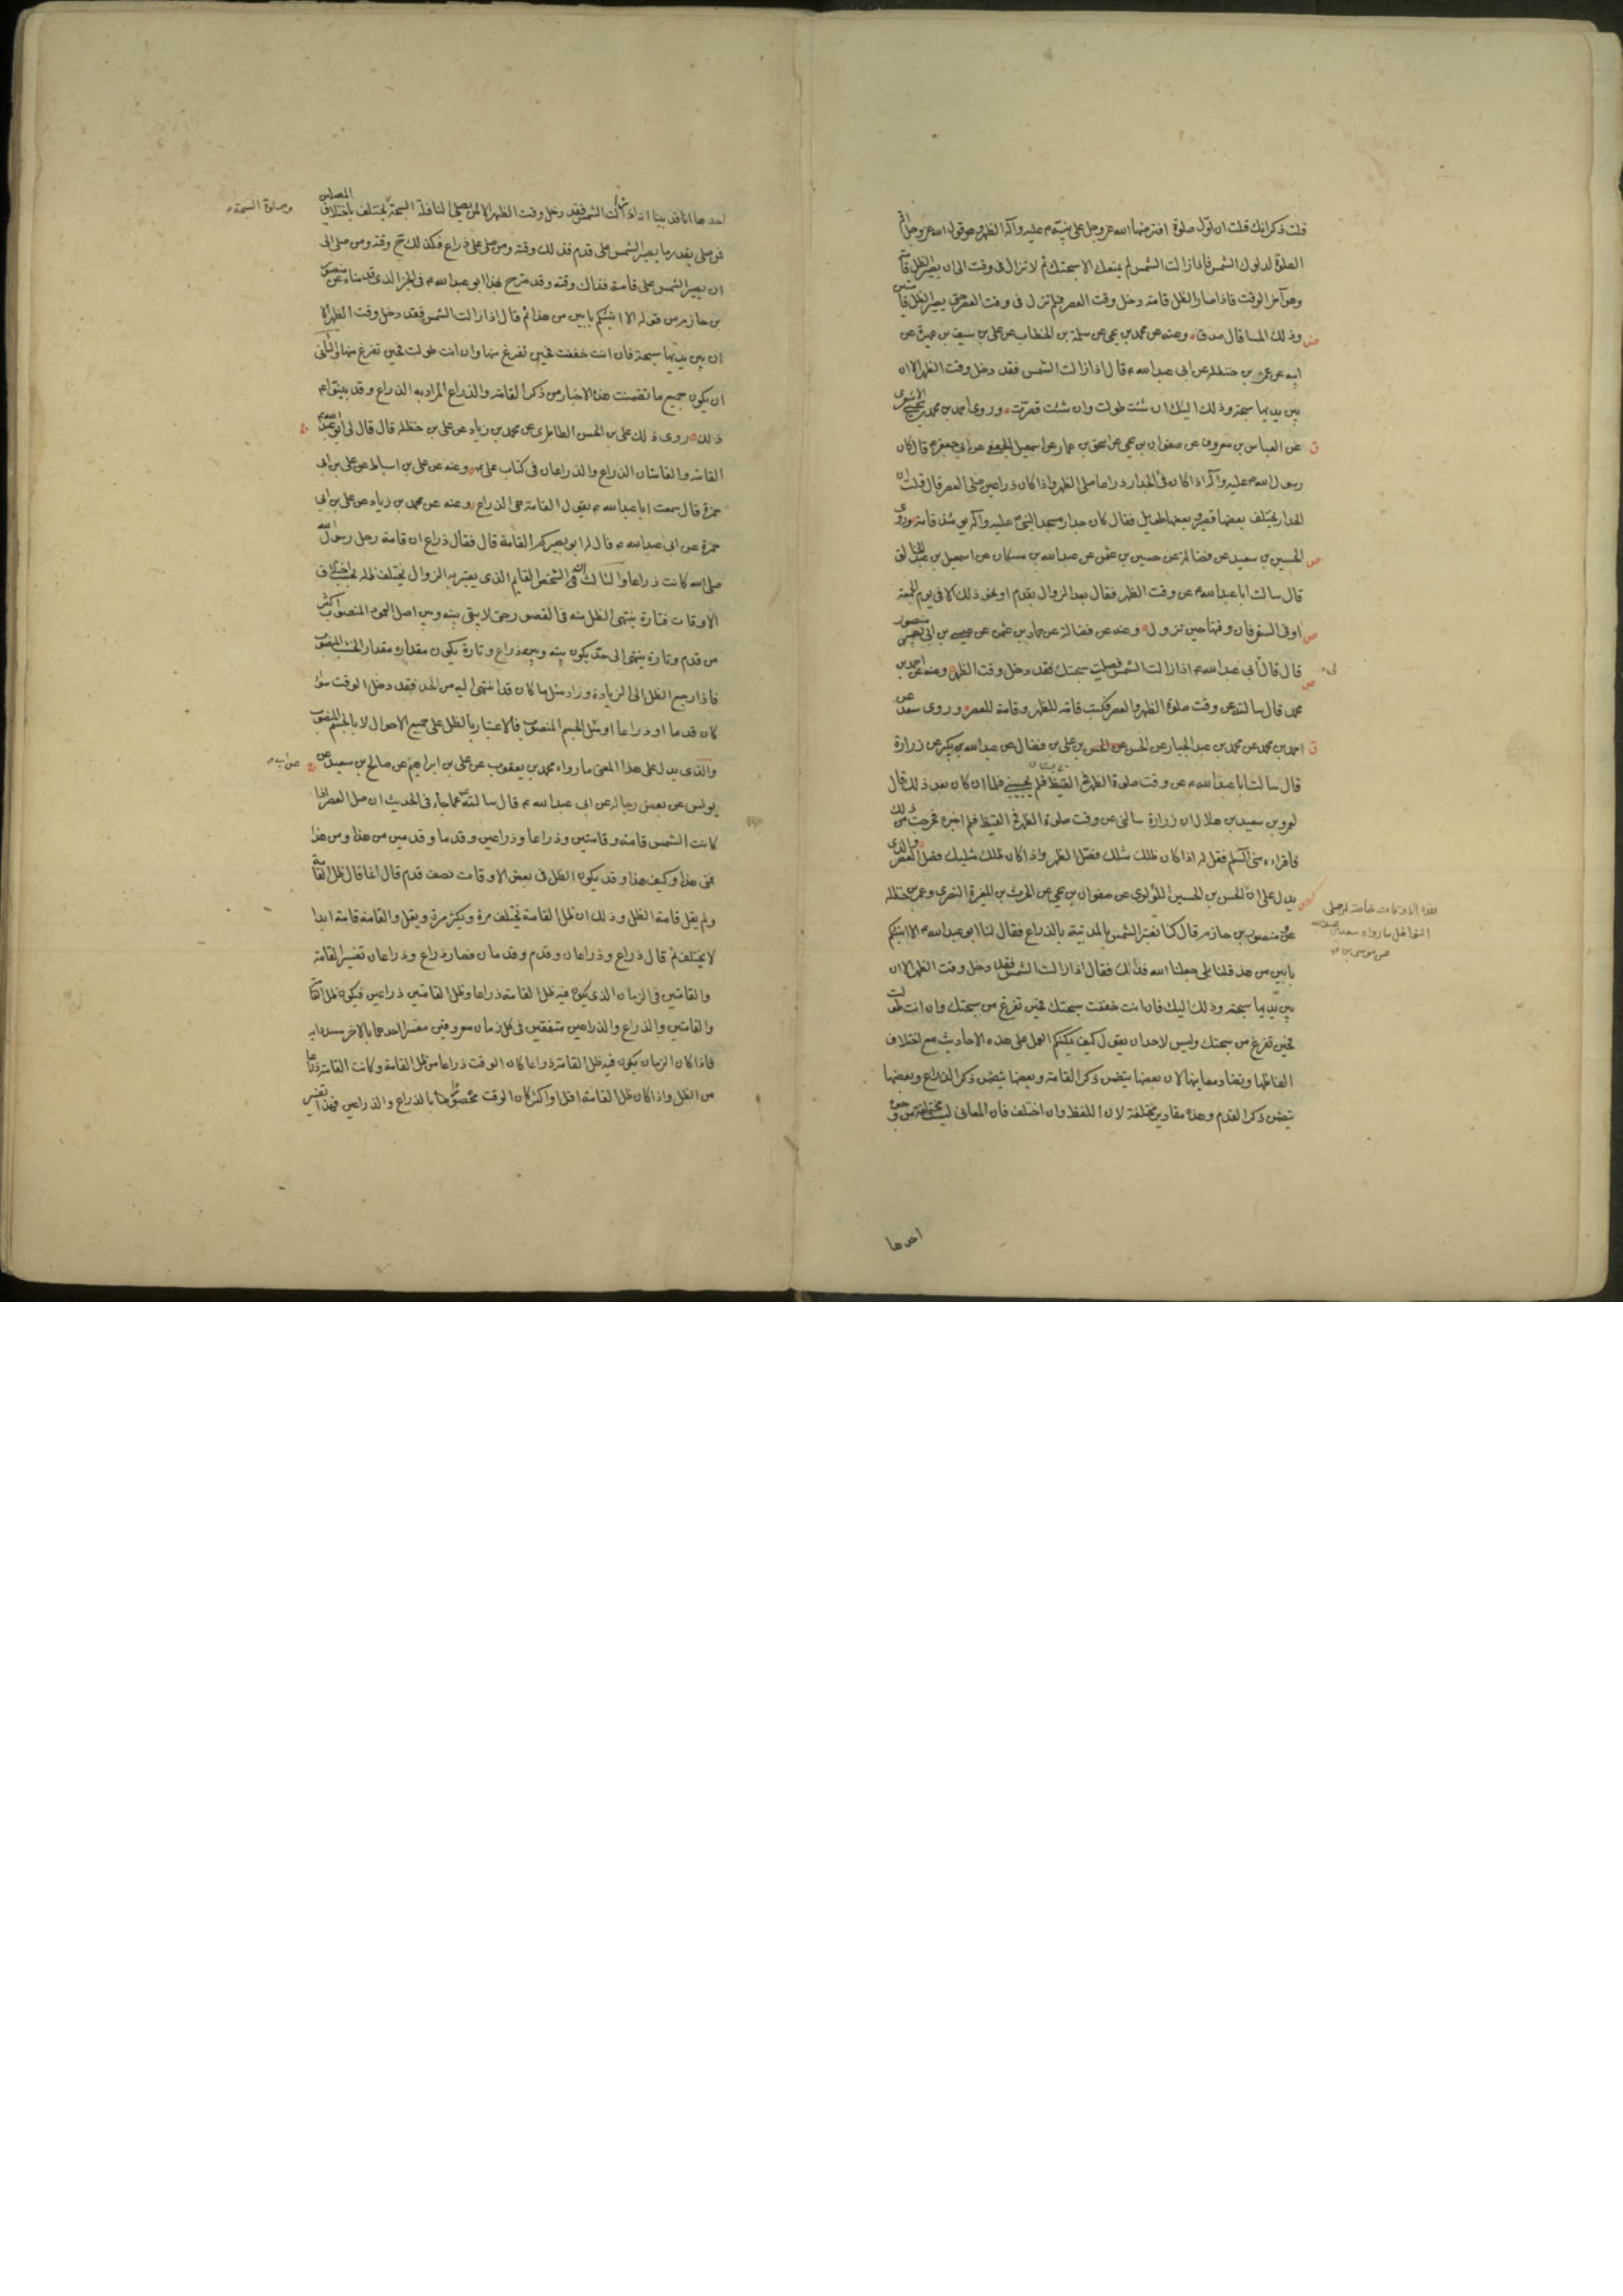 قلت ذكر انك قلت ان اول صلوة افترضها الله عز وجل على نبيه ص عليه وآله الظهر وهو قول الله عز وجل اقم
الصلوة لدلوك الشمس فاذا زالت الشمس لم يمنعك الا سبحتك ثم لا تزال في وقت الى ان يصير الظل قامة
وهو آخر الوقت فاذا صار الظل قامة دخل وقت العصر فلم تزل في وقت العصر حتى يصير الظل قامتين
وذلك المساء قال صدق وعنه عن محمد بن يحيى عن سلمة بن الخطاب عن علي بن سيف بن عميرة عن
ابيه عن عمر بن حنظلة عن ابي عبد الله ع قال اذا زالت الشمس فقد دخل وقت الظهر الا ان
بين يديها سبحة وذلك اليك ان شئت طولت وان شئت قصرت وروى احمد بن محمد بن يحيى
عن العباس بن معروف عن صفوان بن يحيى عن اسحق بن عمار عن اسمعيل الجعفي عن ابي جعفر ع قال كان
رسول الله ص عليه وآله اذا كان فئ الجدار ذراعا صلى الظهر واذا كان ذراعين صلى العصر قال قلت ان
الجدار يختلف بعضها قصير وبعضها طويل فقال كان جدار مسجد النبي ص عليه وآله يومئذ قامة وروى
الحسين بن سعيد عن فضالة عن حسين بن عثمن عن عبد الله بن مسكان عن اسمعيل بن عبد الخالق
قال سالت ابا عبد الله ع عن وقت الظهر فقال بعد الزوال بقدم او نحو ذلك الا في يوم الجمعة
او في السفر فان وقتها حين تزول وعنه عن فضالة عن حماد بن عثمن عن عيسى بن ابي منصور
قال قال لي ابي عبد الله ع اذا زالت الشمس فصليت سبحتك فقد دخل وقت الظهر وعنه عن احمد بن
محمد قال سالته عن وقت صلوة الظهر والعصر فكتب قامة للظهر وقامة للعصر وروى سعد عن
احمد بن محمد عن محمد بن عبد الجبار عن الحسن بن علي بن فضال عن عبد الله بن بكير عن زرارة
قال سالت ابا عبد الله ع عن وقت صلوة الظهر في القيظ فلم يجبني فلما ان كان بعد ذلك قال
لعمرو بن سعيد بن هلال ان زرارة سالني عن وقت صلوة الظهر في القيظ فلم اخبره فحرجت من ذلك
فاقراه مني السلم فقل له اذا كان ظلك مثلك فصل الظهر واذا كان ظلك مثليك فصل العصر والذي
يدل على ان الحسن بن الحسين اللؤلوي عن صفوان بن يحيى عن الحرث بن المغيرة النصري وعمر بن حنظلة
عن منصور بن حازم قال كنا نعتبر الشمس بالمدينة بالذراع فقال لنا ابو عبد الله ع الا انبئكم
بابين من هذا قلنا بلى جعلنا الله فداك فقال اذا زالت الشمس فقد دخل وقت الظهر الا ان
بين يديها سبحة وذلك اليك فان انت خففت سبحتك فحين تفرغ من سبحتك وان انت طولت
فحين تفرغ من سبحتك وليس لاحد ان يقول كيف يمكنكم العمل على هذه الاحاديث مع اختلاف
الفاظها وتضاد معانيها لان بعضها يتضمن ذكر القامة وبعضها يتضمن ذكر الذراع وبعضها
يتضمن ذكر القدم وهذه مقادير مختلفة لان اللفظ وان اختلف فان المعاني ليست مختلفة من وجوه
هذه الاوقات خاصة لمن صلى
النوافل ما رواه سعد بن عبد الله
عن موسى بن
احدها
احدها انا قد بينا انه اذا زالت الشمس فقد دخل وقت الظهر الا لمن يصلي النافلة السبحة يختلف باختلاف المصلين
وصلوة السبحة
فمن صلى بقدر ما يصير الشمس على قدم فذلك وقته ومن صلى على ذراع فكذلك ح وقته ومن صلى الى
ان يصير الشمس على قامة فذاك وقته وقد صرح بهذا ابو عبد الله ع في الخبر الذي قدمناه عن منصور
بن حازم من قوله الا انبئكم بابين من هذا ثم قال اذا زالت الشمس فقد دخل وقت الظهر الا
ان بين يديها سبحة فان انت خففت فحين تفرغ منها وان انت طولت فحين تفرغ منها والثاني
ان يكون جميع ما تضمنت هذه الاخبار من ذكر القامة والذراع المراد به الذراع وقد بينوا ع
ذلك روى ذلك علي بن الحسن الطاطري عن محمد بن زياد عن علي بن حنظلة قال قال لي ابو عبد الله ع
القامة والقامتان الذراع والذراعان في كتاب علي ع وعنه عن علي بن اسباط عن علي بن ابي
حمزة قال سمعت ابا عبد الله ع يقول القامة هي الذراع وعنه عن محمد بن زياد عن علي بن ابي
حمزة عن ابي عبد الله ع قال له ابو بصير كم القامة قال فقال ذراع ان قامة رحل رسول الله
صلى الله كانت ذراعا والثالث ان الشخص القايم الذي يعتبر به الزوال يختلف ظله بحسب اختلاف
الاوقات فتارة ينتهي الظل منه في القصور حتى لا يبقى بينه وبين اصل العمود المنصوب اكثر
من قدم وتارة ينتهي الى حد يكون بينه وبينه ذراع وتارة يكون مقداره مقدار الخشب المنصوب
فاذا رجع الظل الى الزيادة وزاد مثل ما كان قد انتهى اليه من الحد فقد دخل الوقت سواء
كان قدما او ذراعا او مثل الجسم المنصوب فالاعتبار بالظل على جميع الاحوال لا بالجسم المنصوب
والذي يدل على هذا المعنى ما رواه محمد بن يعقوب عن علي بن ابراهيم عن صالح بن سعيد عن
عن ابيه
يونس عن بعض رجاله عن ابي عبد الله ع قال سالته عما جاء في الحديث ان صل العصر اذا
كانت الشمس قامة وقامتين وذراعا وذراعين وقدما وقدمين من هذا ومن هذا
فمتى هذا وكيف هذا وقد يكون الظل في بعض الاوقات نصف قدم قال انما قال ظل القامة
ولم يقل قامة الظل وذلك ان ظل القامة تختلف مرة ويكثر مرة ويقل والقامة قامة ابدا
لا يختلف ثم قال ذراع وذراعان وقدم وقدمان فصار ذراع وذراعان تفسير القامة
والقامتين في الزمان الذي يكون فيه ظل القامة ذراعا وظل القامتين ذراعين فيكون ظل القامة
والقامتين والذراع والذراعين متفقين في كل زمان معروفين مفسرا احدهما بالاخر مسددا به
فاذا كان الزمان يكون فيه ظل القامة ذراعا كان الوقت ذراعا من ظل القامة وكانت القامة ذراعا
من الظل واذا كان ظل القامة اقل او اكثر كان الوقت محصورا بالذراع والذراعين فهذا تفسير